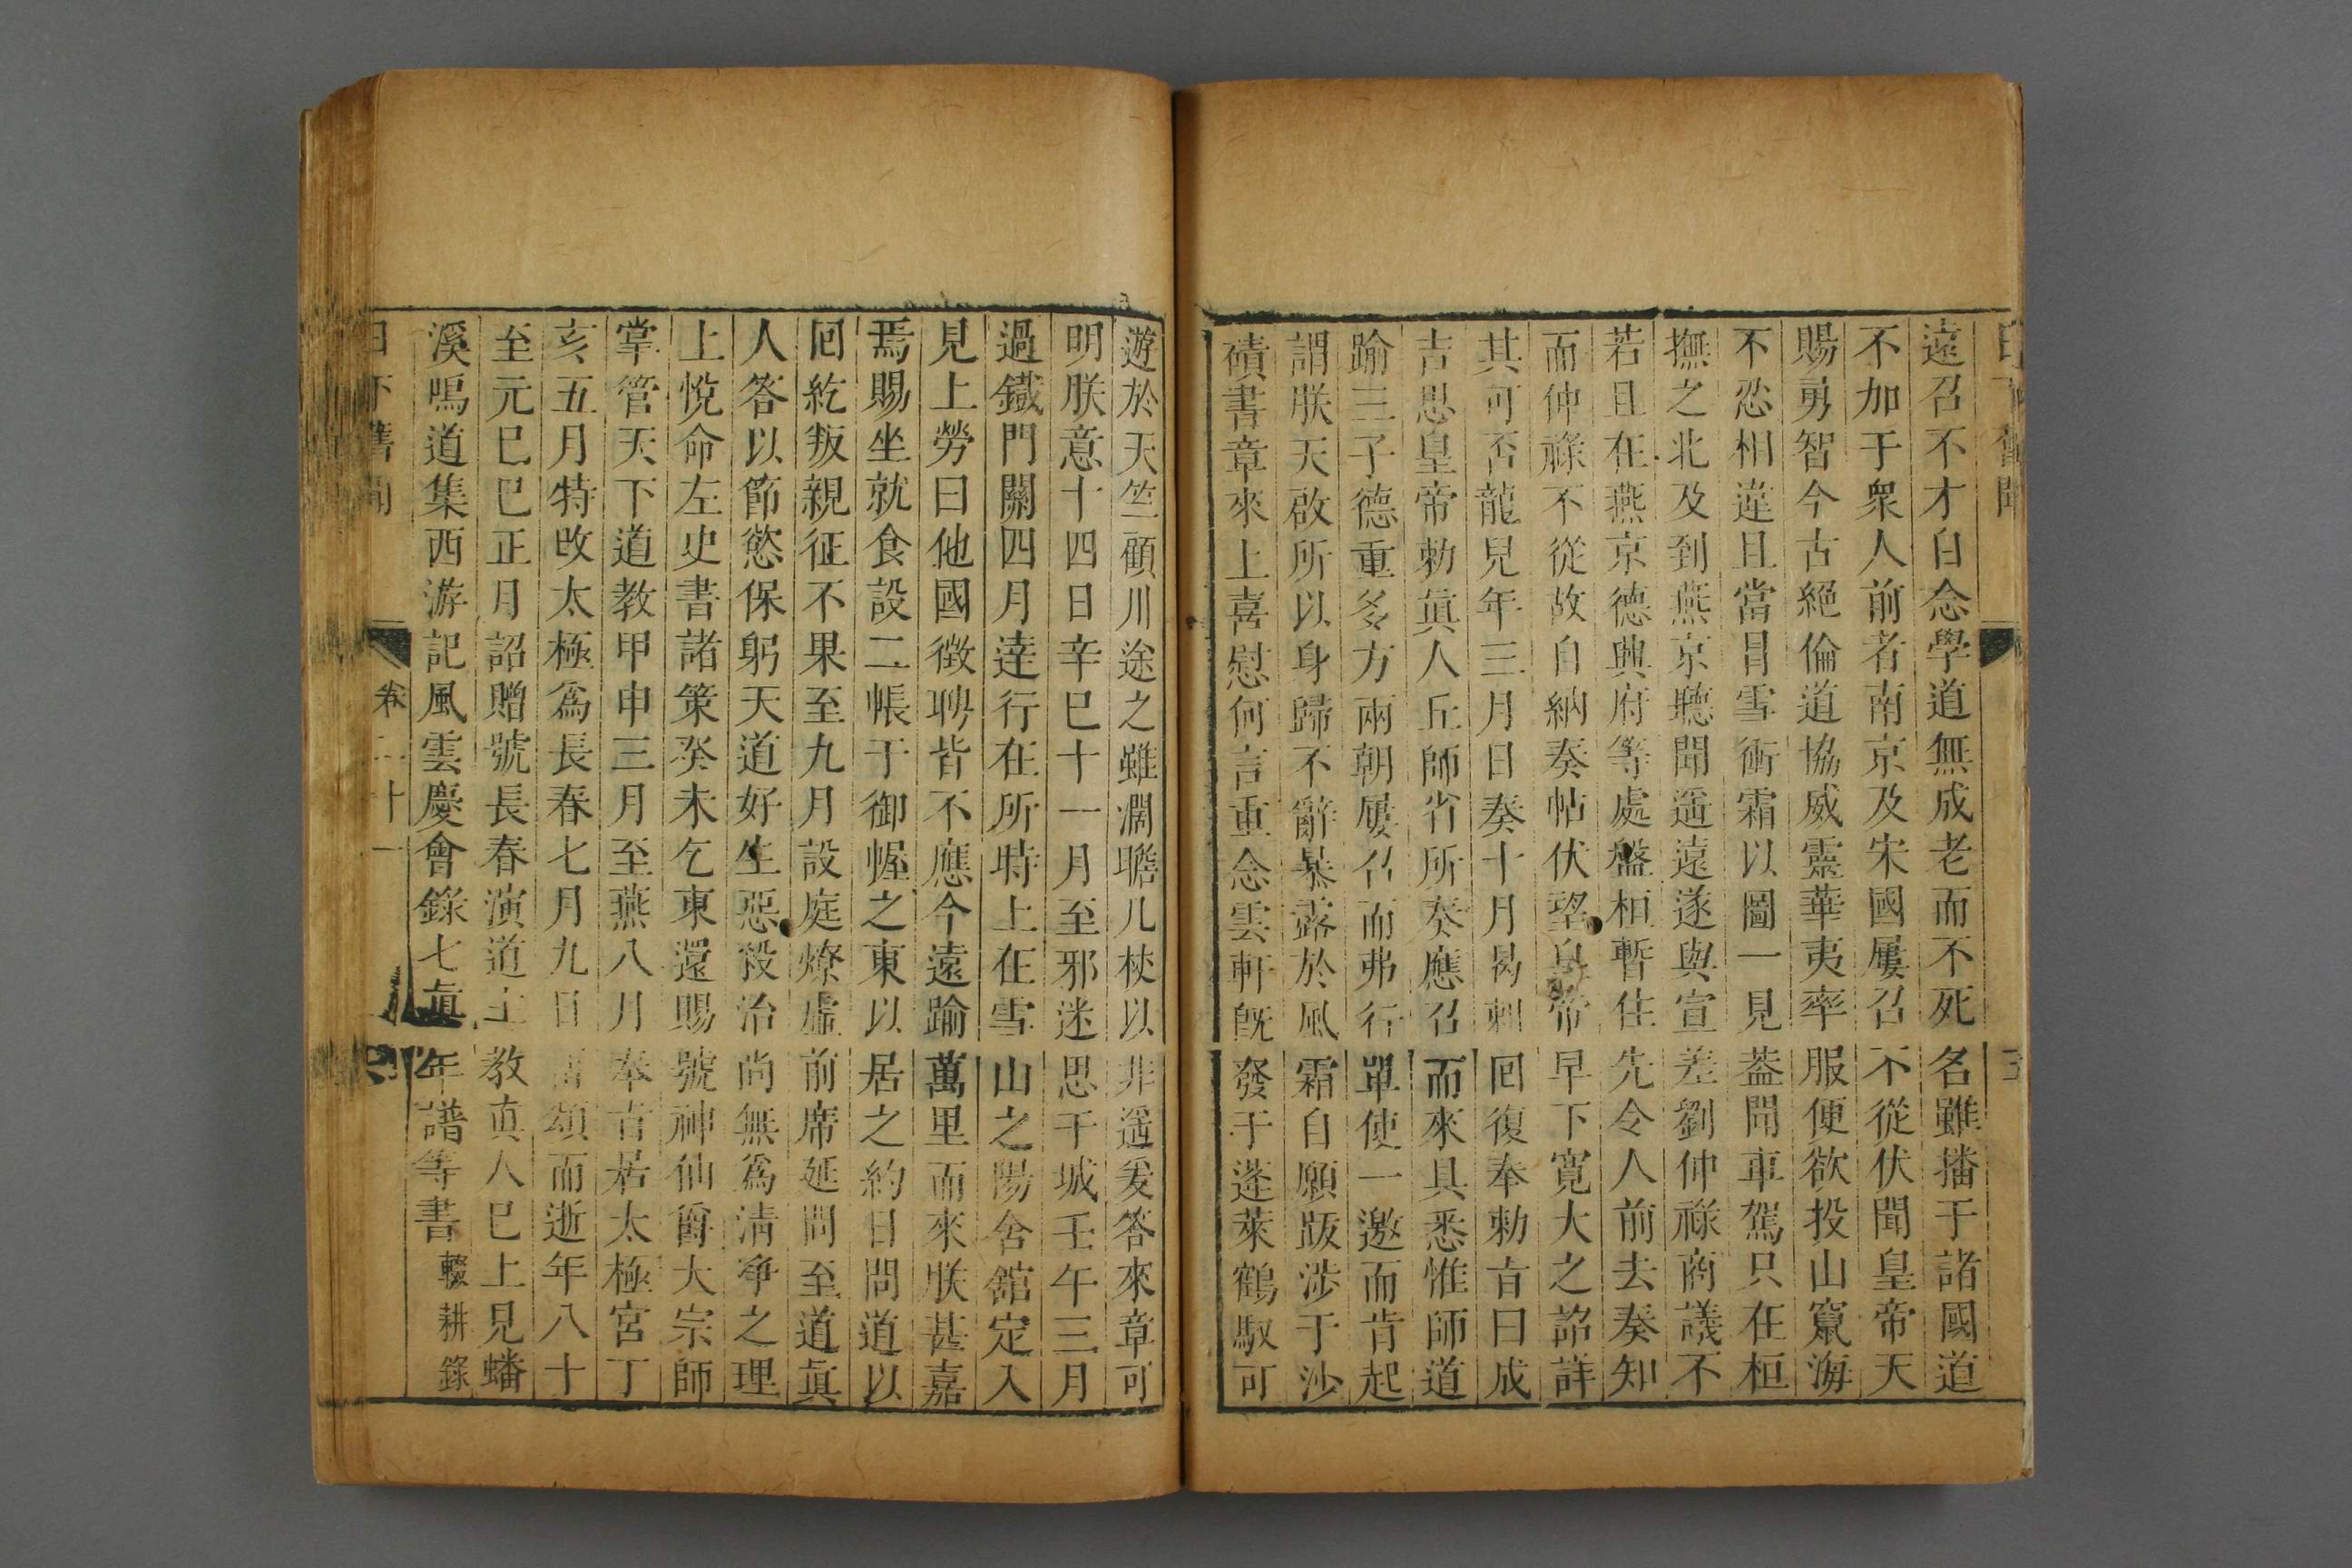 日下舊聞
遠召不才自念學道無成老而不死名雖播于諸國道
不加于衆人前者南京及宋國屢召不從伏聞皇帝天
賜勇智今古絕倫道協威靈華夷率服便欲投山竄海
不忍相違且當冒雪衝霜以圖一見葢聞車駕只在桓
撫之北及到燕京聽聞遥遠遂與宣差劉仲祿商議不
若且在燕京德興府等處盤桓暫住先令人前去奏知
而仲祿不從故自納奏帖伏望皇帝早下寛大之詔詳
其可否龍兒年三月日奏十月曷剌回復奉勅㫖曰成
吉思皇帝勅眞人丘師省所奏應召而來具悉惟師道
踰三子德重多方兩朝屢召而弗行單使一邀而肯起
謂朕天啟所以身歸不辭暴露於風霜自願䟦涉于沙
磧書章來上喜慰何言重念雲軒旣發于蓬萊鶴馭可
遊於天竺顧川途之雖濶瞻几杖以非遥爰答來章可
明朕意十四日辛巳十一月至邪迷思干城壬午三月
過鐵門關四月達行在所時上在雪山之陽舍舘定入
見上勞曰他國徵聘皆不應今遠踰萬里而來朕甚嘉
焉賜坐就食設二帳于御幄之東以居之約日問道以
回紇叛親征不果至九月設庭燎虛前席延問至道眞
人答以節慾保躬天道好生惡殺治尚無爲清淨之理
上悅命左史書諸策癸未乞東還賜號神仙爵大宗師
掌管天下道教甲申三月至燕八月奉㫖居太極宮丁
亥五月特改太極爲長春七月九日留頌而逝年八十
至元己巳正月詔贈號長春演道主教真人已上見蟠
溪嗚道集西游記風雲慶會錄七眞年譜等書輟耕錄
日下舊聞 卷二十一